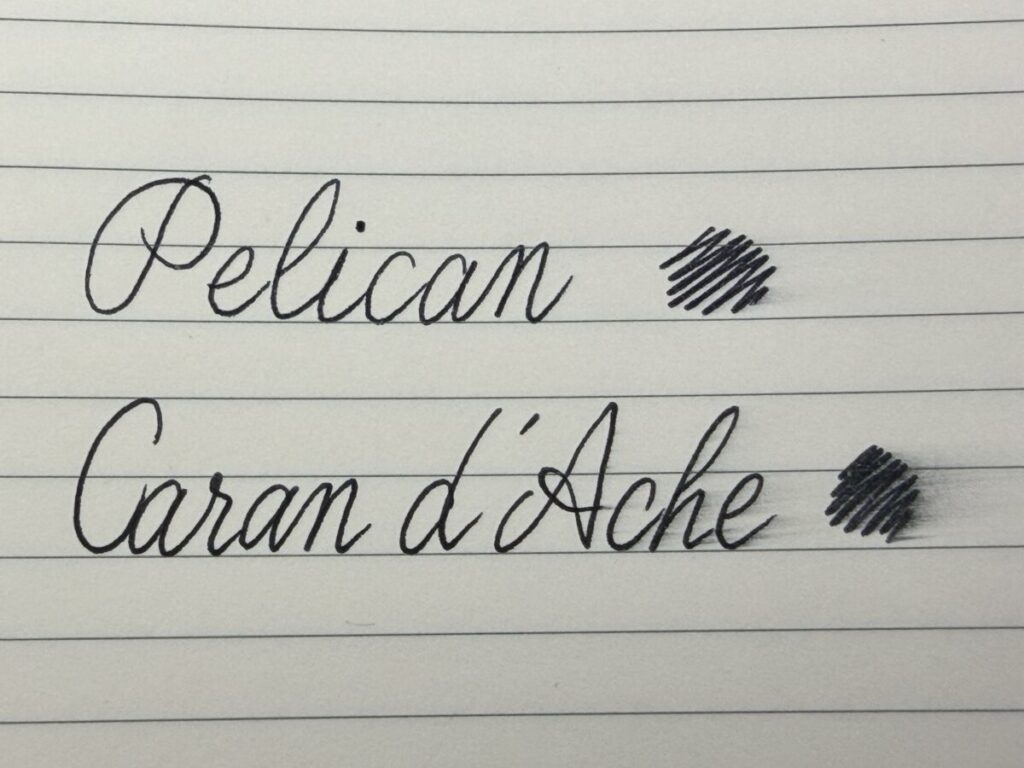 Pelican
Caran d'Ache